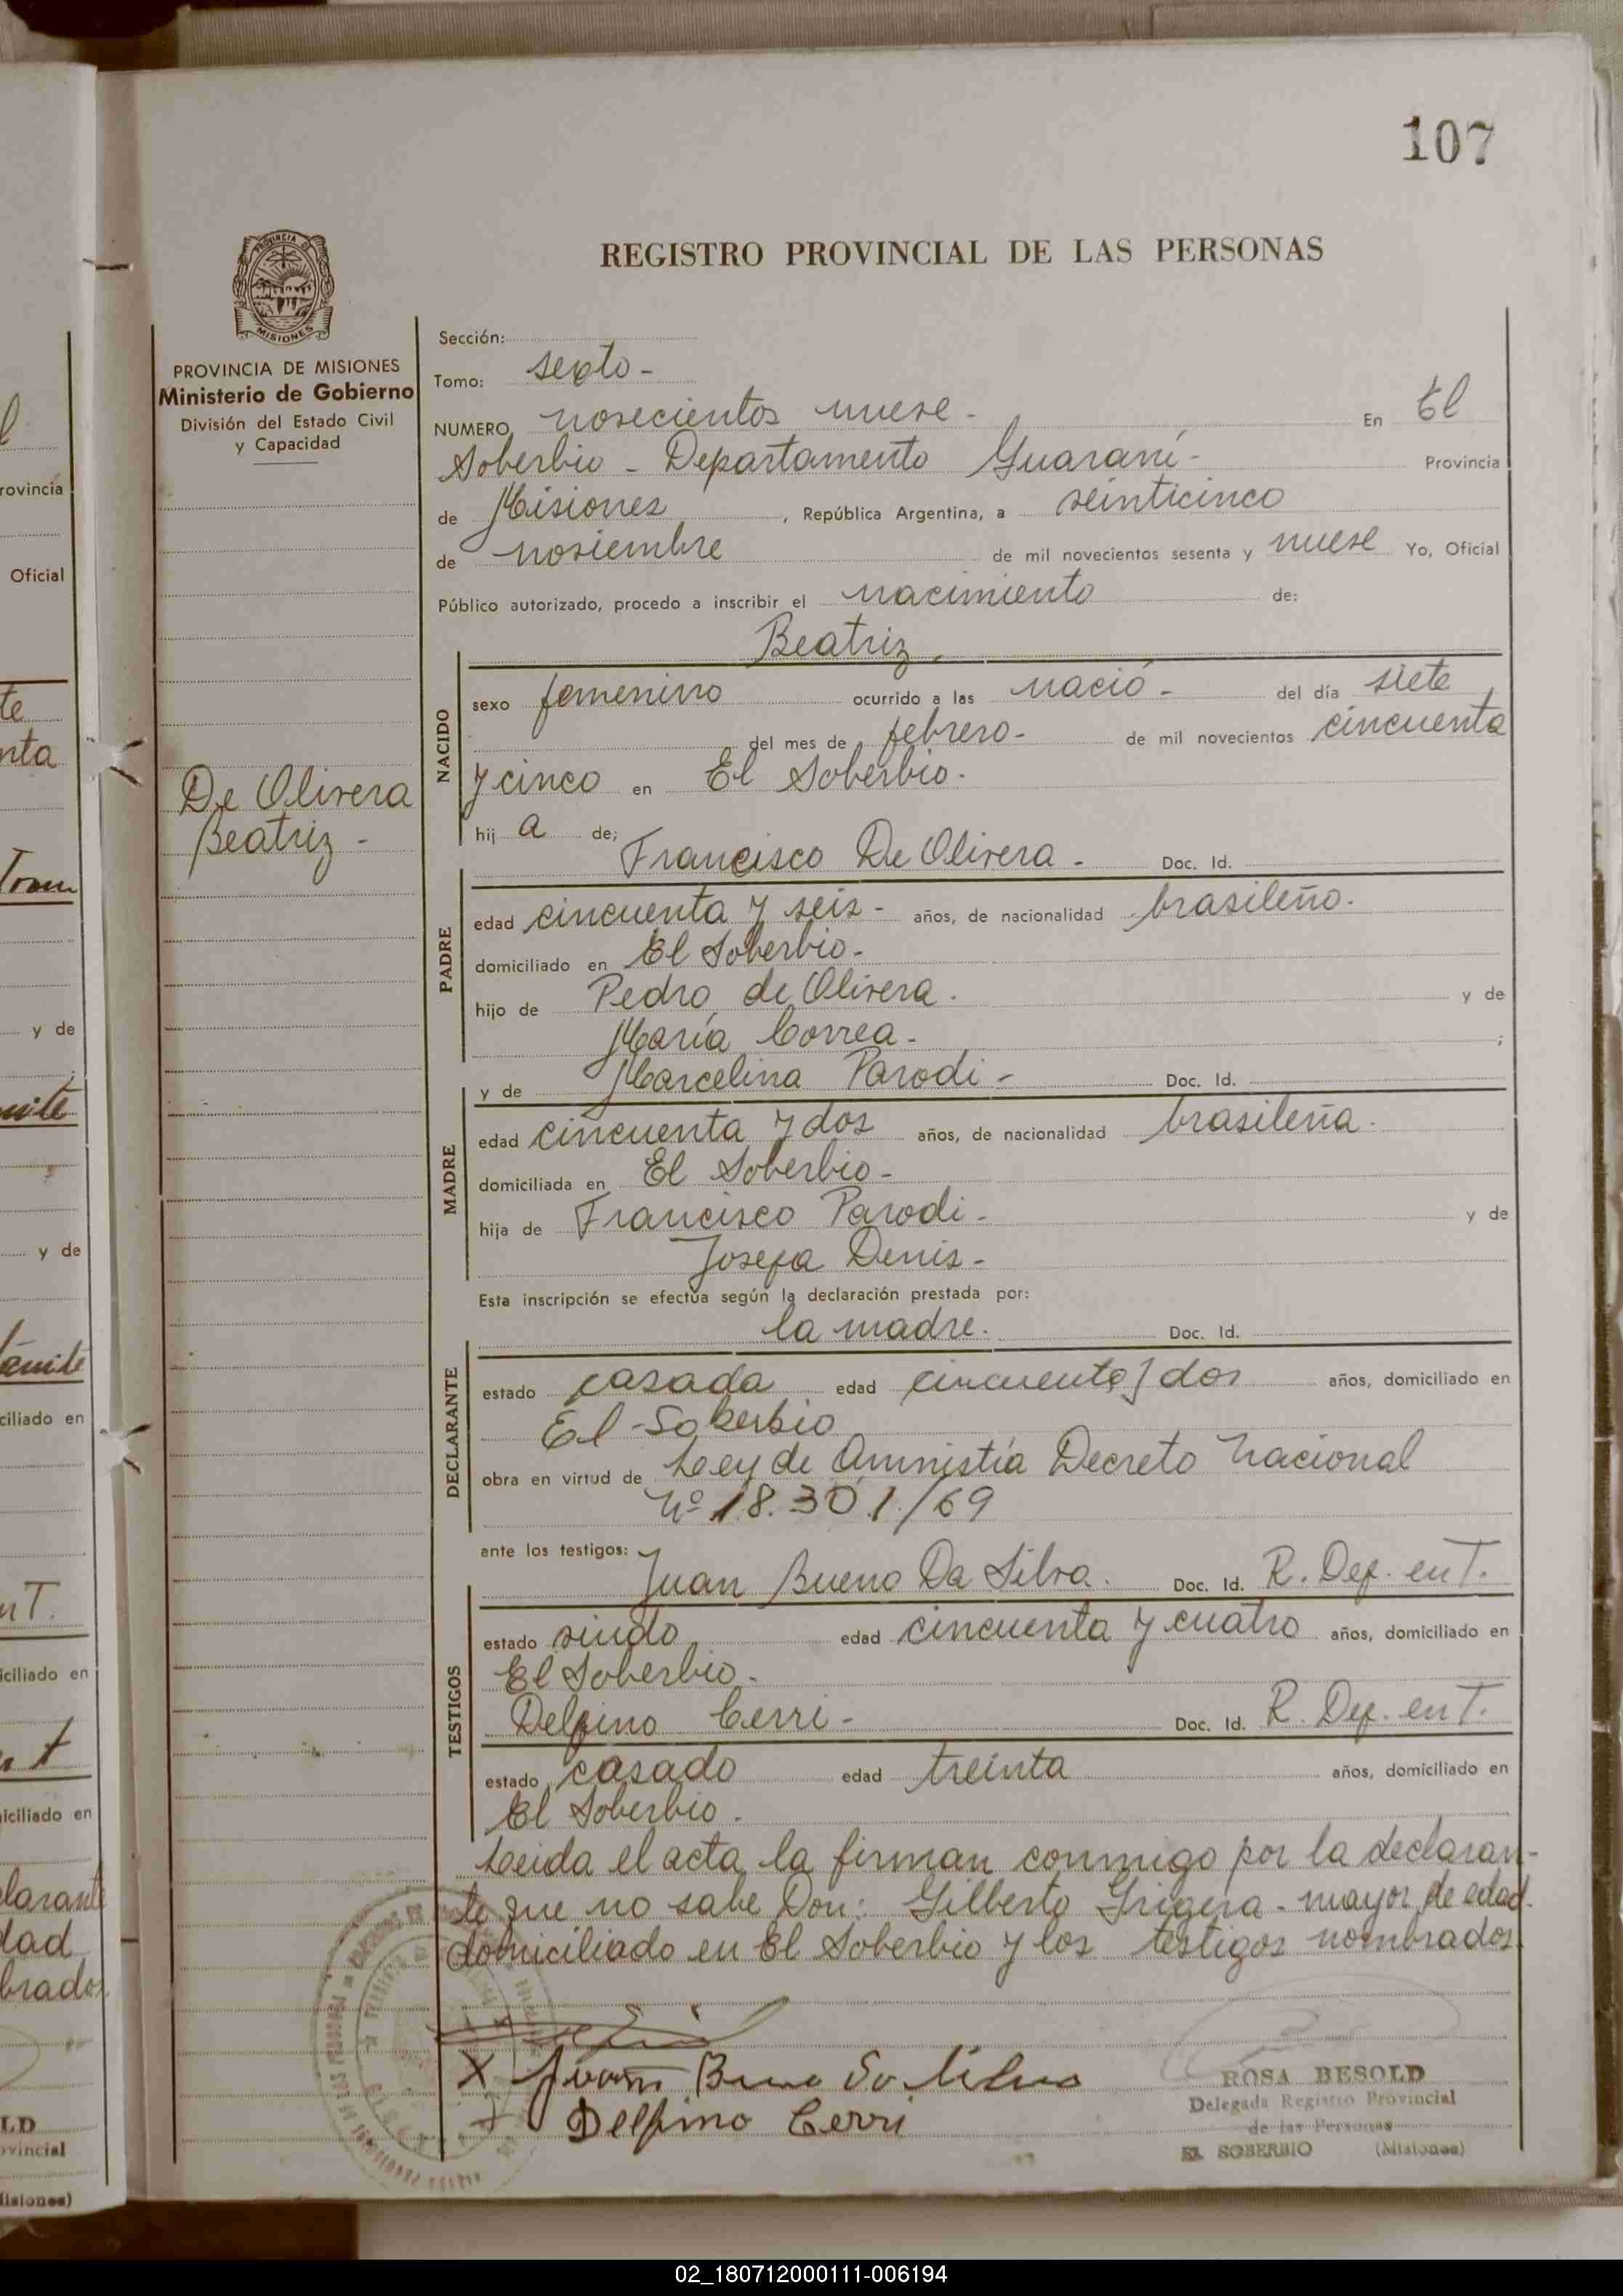 107
REGISTRO PROVINCIAL DE LAS PERSONAS
PROVINCIA DE MISIONES
Ministerio de Gobierno
División del Estado Civil
y Capacidad
De Olivera
Beatriz -
Sección:
Tomo: sexto -
NUMERO novecientos nueve - En El
Soberbio - Departamento Guaraní - Provincia
de Misiones, República Argentina, a veinticinco
de noviembre de mil novecientos sesenta y nueve Yo, Oficial
Público autorizado, procedo a inscribir el nacimiento de:
Beatriz
NACIDO
sexo femenino ocurrido a las nació - del día siete
del mes de febrero - de mil novecientos cincuenta
y cinco en El Soberbio.
hij a de;
Francisco De Olivera - Doc. Id.
PADRE
edad cincuenta y seis - años, de nacionalidad brasileño.
domiciliado en El Soberbio -
hijo de Pedro de Olivera. y de
María Correa - ;
y de Marcelina Parodi - Doc. Id.
MADRE
edad cincuenta y dos años, de nacionalidad brasileña.
domiciliada en El Soberbio -
hija de Francisco Parodi - y de
Josefa Denis -
Esta inscripción se efectúa según la declaración prestada por:
la madre. Doc. Id.
DECLARANTE
estado casada edad cincuenta y dos años, domiciliado en
El Soberbio
obra en virtud de Ley de Amnistía Decreto Nacional
Nº 18.301/69
ante los testigos:
Juan Bueno Da Silva. Doc. Id. R. Def. en T.
TESTIGOS
estado viudo edad cincuenta y cuatro años, domiciliado en
El Soberbio -
Delfino Cerri - Doc. Id. R. Def. en T.
estado casado edad treinta años, domiciliado en
El Soberbio.
Leida el acta, la firman conmigo por la declaran-
te que no sabe Don: Gilberto Grigera - mayor de edad.
domiciliado en El Soberbio y los testigos nombrados.
X Juan Bueno Da Silva
X Delfino Cerri
ROSA BESOLD
Delegada Registro Provincial
de las Personas
EL SOBERBIO (Misiones)
02_180712000111-006194